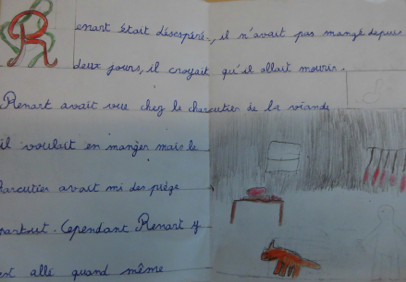 Renart était désespéré, il n'avait pas mangé depuis
deux jours, il croyait qu'il allait mourir.
Renart avait vue chez le charcutier de la viande
il voulait en manger mais le
charcutier avait mi des piège
partout. Cependant Renart y
est allé quand même